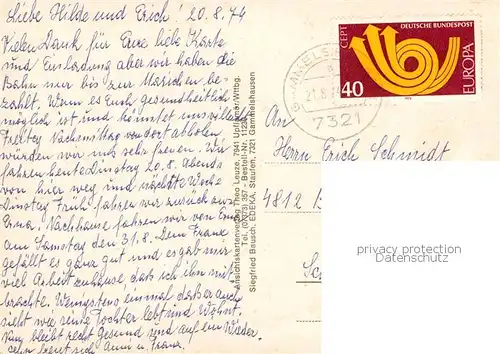 Liebe Hilde und Erich! 20.8.74
Vielen Dank für Eure liebe Karte
und Einladung aber wir haben die
Bahn nur bis zur Marichen be-
zahlt. Wenn es Euch gesundheitlich
möglich ist und könntet uns
Freitag Nachmittag von dort abholen
würden wir uns sehr freuen. Wir
fahren heute Dinstag 20.8. Abends
von hier weg und nächste Woche
Dinstag Früh fahren wir zurück zu
Erna. Nachhause fahren wir von Erna
am Samstag den 31.8. Dem Franz
gefällt es ganz gut und ergab mir
viel Arbeit zuhause, das ich ihn mit
brachte. Wenigstens einmal das er auch
sieht wie seine Tochter lebt und Wohnt.
Nun bleibt recht Gesund und auf ein Wieder-
sehn freut sich Anni u Franz.
Ansichtskartenverlag Theo Leuze, 7941 Upflamör/Wttbg.
Tel. (07373) 357 - Bestell-Nr. 1122
Siegfried Bausch, EDEKA, Staufen, 7321 Gammelshausen
CEPT DEUTSCHE BUNDESPOST
40 EUROPA
21.8.
7321
An
Herrn Erich Schmidt
4812
privacy protection
Datenschutz